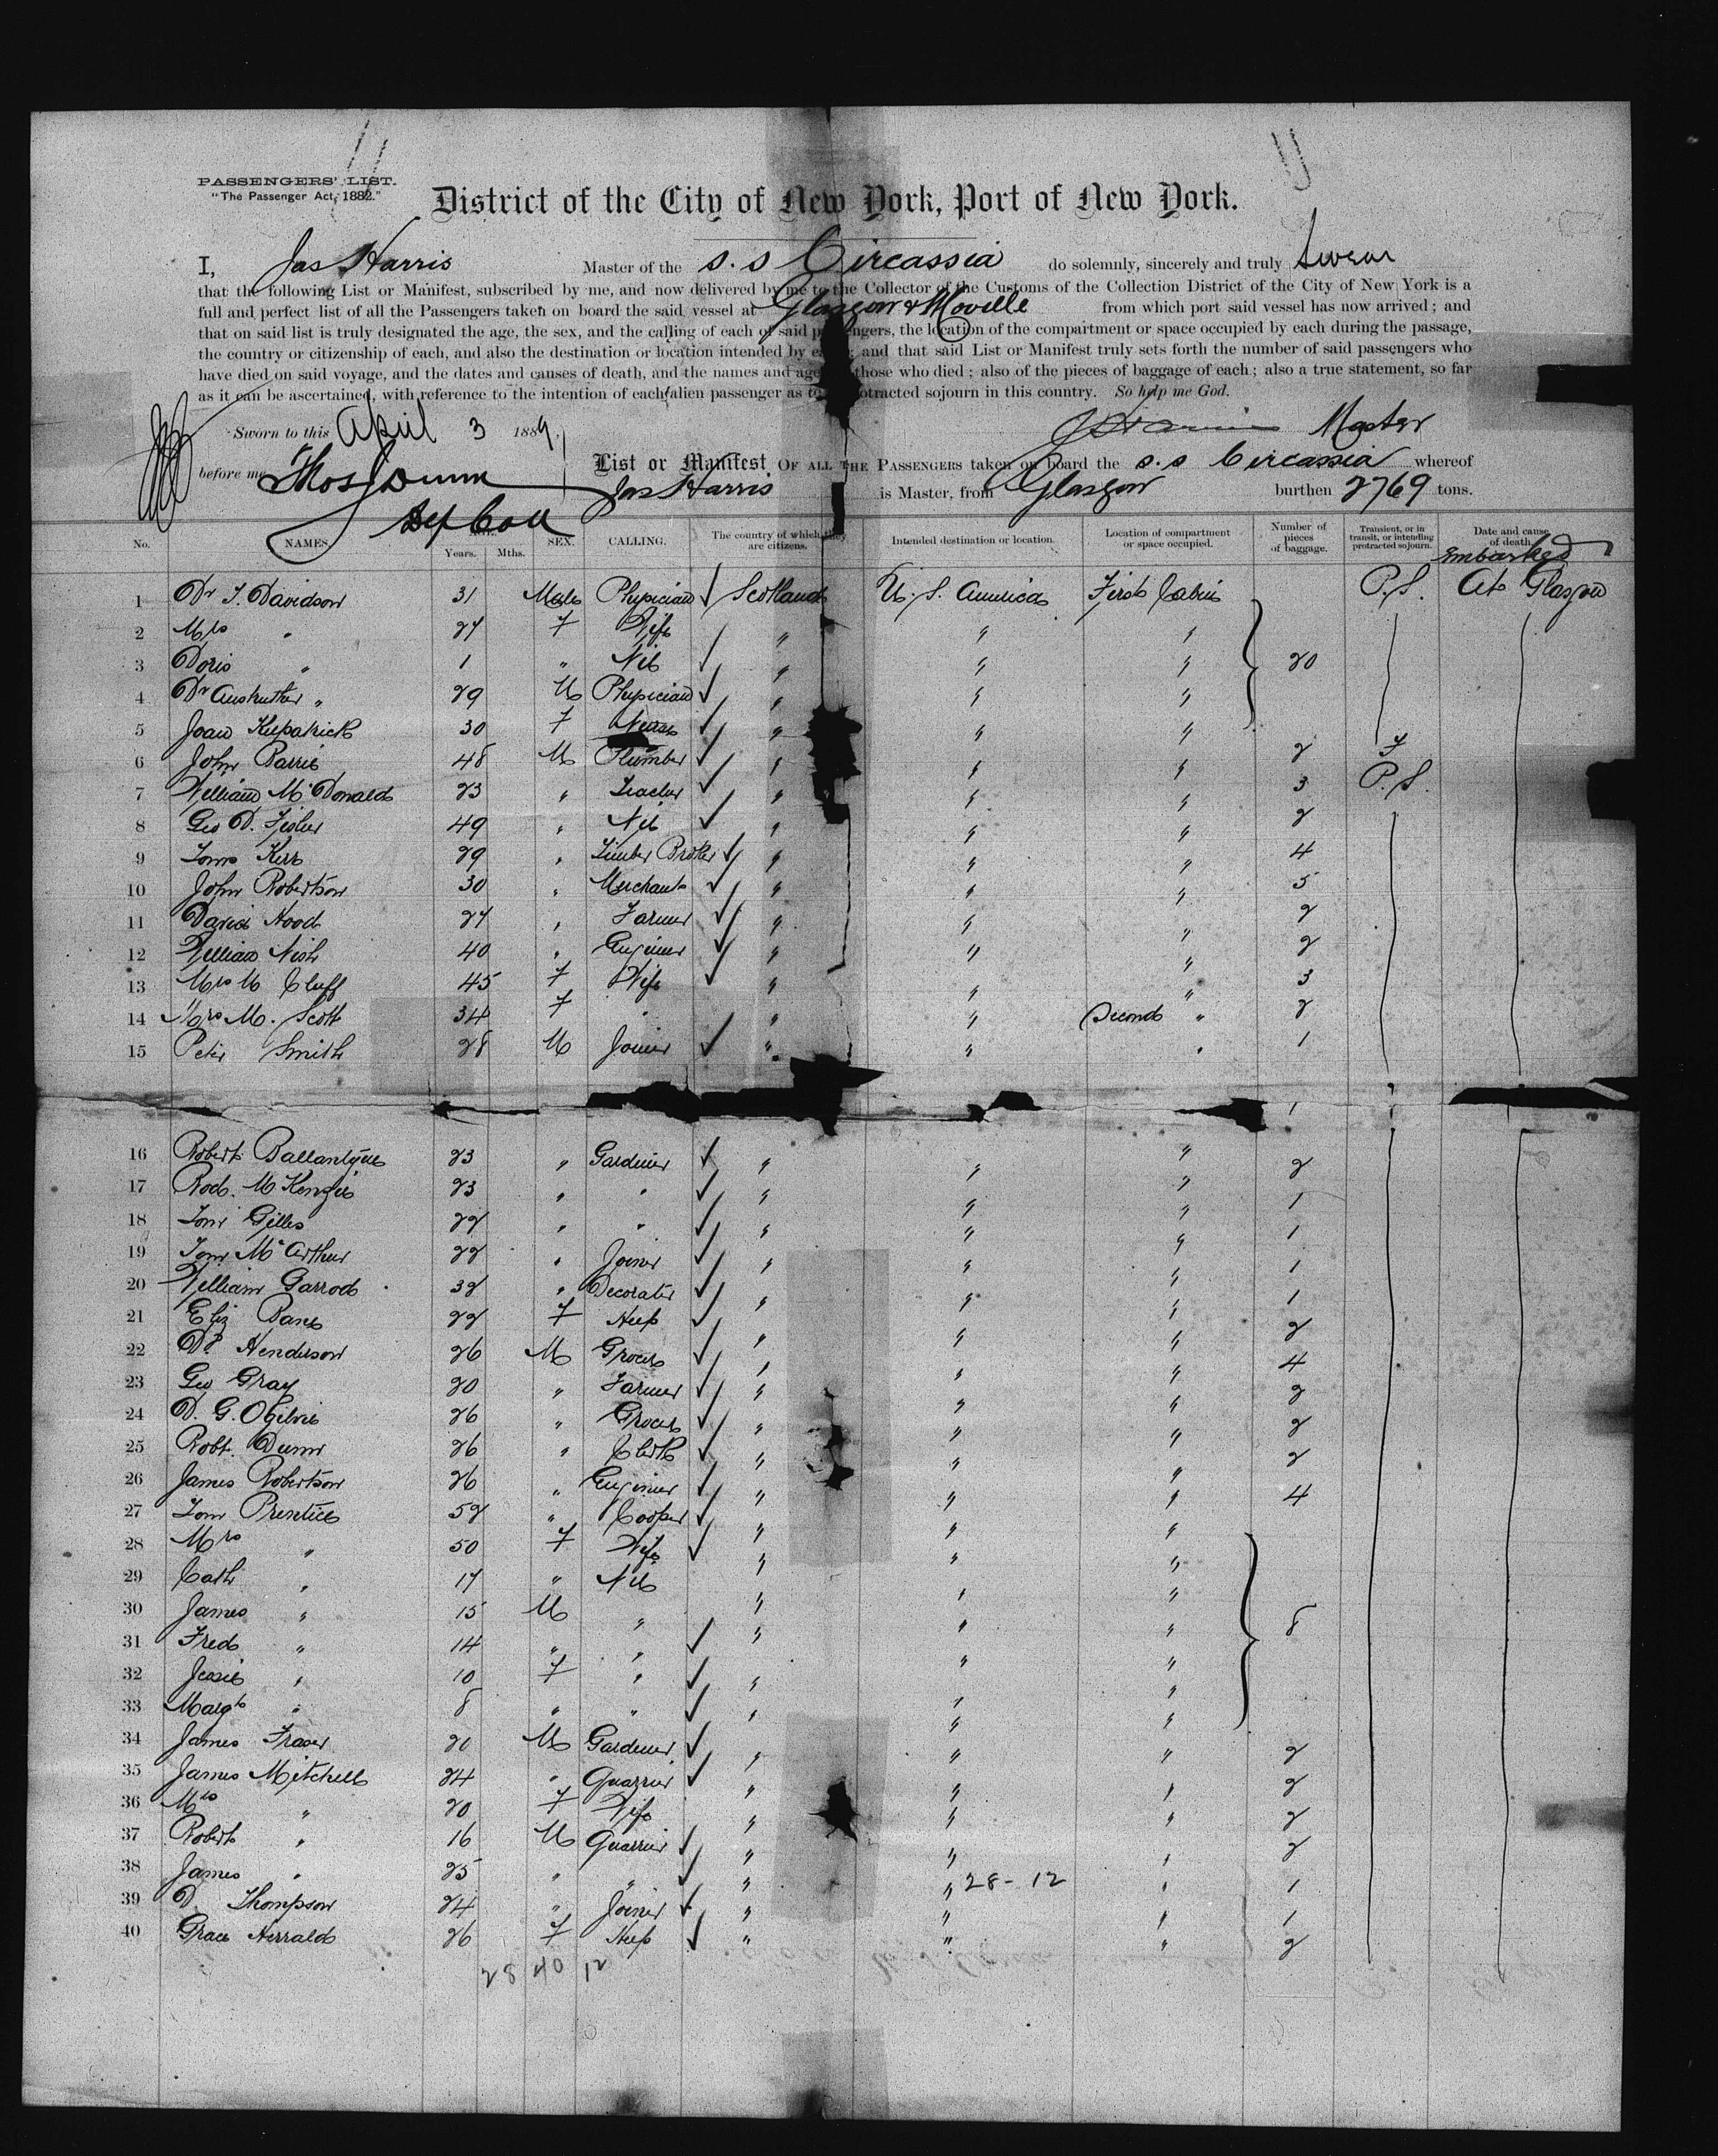 PASSENGERS' LIST.
"The Passenger Act, 1882."
District of the City of New York, Port of New York.
I, Jas Harris Master of the s.s Circassia do solemnly, sincerely and truly Swear
that the following List or Manifest, subscribed by me, and now delivered by me to the Collector of the Customs of the Collection District of the City of New York is a
full and perfect list of all the Passengers taken on board the said vessel at Glasgow & Moville from which port said vessel has now arrived; and
that on said list is truly designated the age, the sex, and the calling of each of said passengers, the location of the compartment or space occupied by each during the passage,
the country or citizenship of each, and also the destination or location intended by each; and that said List or Manifest truly sets forth the number of said passengers who
have died on said voyage, and the dates and causes of death, and the names and ages of those who died; also of the pieces of baggage of each; also a true statement, so far
as it can be ascertained, with reference to the intention of each alien passenger as to protracted sojourn in this country. So help me God.
Sworn to this April 3 1889
J Harris Master
before me Thos Dunn
Dep Coll
List or Manifest OF ALL THE PASSENGERS taken on board the s.s Circassia whereof
Jas Harris is Master, from Glasgow burthen 2769 tons.
No. NAMES. Years. Mths. SEX. CALLING. The country of which they are citizens. Intended destination or location. Location of compartment or space occupied. Number of pieces of baggage. Transient, or in transit, or intending protracted sojourn. Date and cause of death.
Embarked
1 Dr J. Davidson 31 Male Physician Scotland U. S. America First Cabin P.S. At Glasgow
2 Mrs " 27 F Wife " " "
3 Doris " 1 " Nil " " " 20
4 Dr Anstruther " 29 M Physician " " "
5 Joan Kilpatrick 30 F Nurse " " "
6 John Barrie 48 M Plumber " " " 2 T
7 William McDonald 23 " Teacher " " " 3 P.S.
8 Geo D. Fisher 49 " Nil " " " 2
9 Tom Kerr 29 " Timber Broker " " " 4
10 John Robertson 30 " Merchant " " " 5
11 David Hood 27 " Farmer " " " 2
12 William Nish 40 " Engineer " " " 2
13 Mrs M Cluff 45 F Wife " " " 3
14 Mrs M. Scott 34 F " " " Second " 2
15 Peter Smith 28 M Joiner " " " 1
1
16 Robert Ballantyne 23 " Gardener " " " 2
17 Rod. McKenzie 23 " " " " " 1
18 Tom Gilles 22 " " " " " 1
19 Tom McArthur 22 " Joiner " " " 1
20 William Garrod 32 " Decorator " " " 1
21 Eliz Bane 22 F Keep " " " 2
22 Dd Henderson 26 M Grocer " " " 4
23 Geo Gray 20 " Farmer " " " 2
24 D. G. Ogilvie 26 " Grocer " " " 2
25 Robt. Dunn 26 " Clerk " " " 2
26 James Robertson 26 " Engineer " " " 4
27 Tom Prentice 52 " Cooper " " "
28 Mrs " 50 F Wife " " "
29 Cath " 17 " Nil " " "
30 James " 15 M " " " " 8
31 Fred " 14 " " " " "
32 Jessie " 10 F " " " "
33 Margt " 8 " " " " "
34 James Fraser 20 M Gardener " " " 2
35 James Mitchell 24 " Quarrier " " " 2
36 Mrs " 20 F Wife " " " 2
37 Robert " 16 M Quarrier " " " 2
38 James " 25 " " " " 28-12 " 1
39 D. Thompson 24 " Joiner " " " 1
40 Grace Herrald 26 F Keep " " " 2
28 40 12